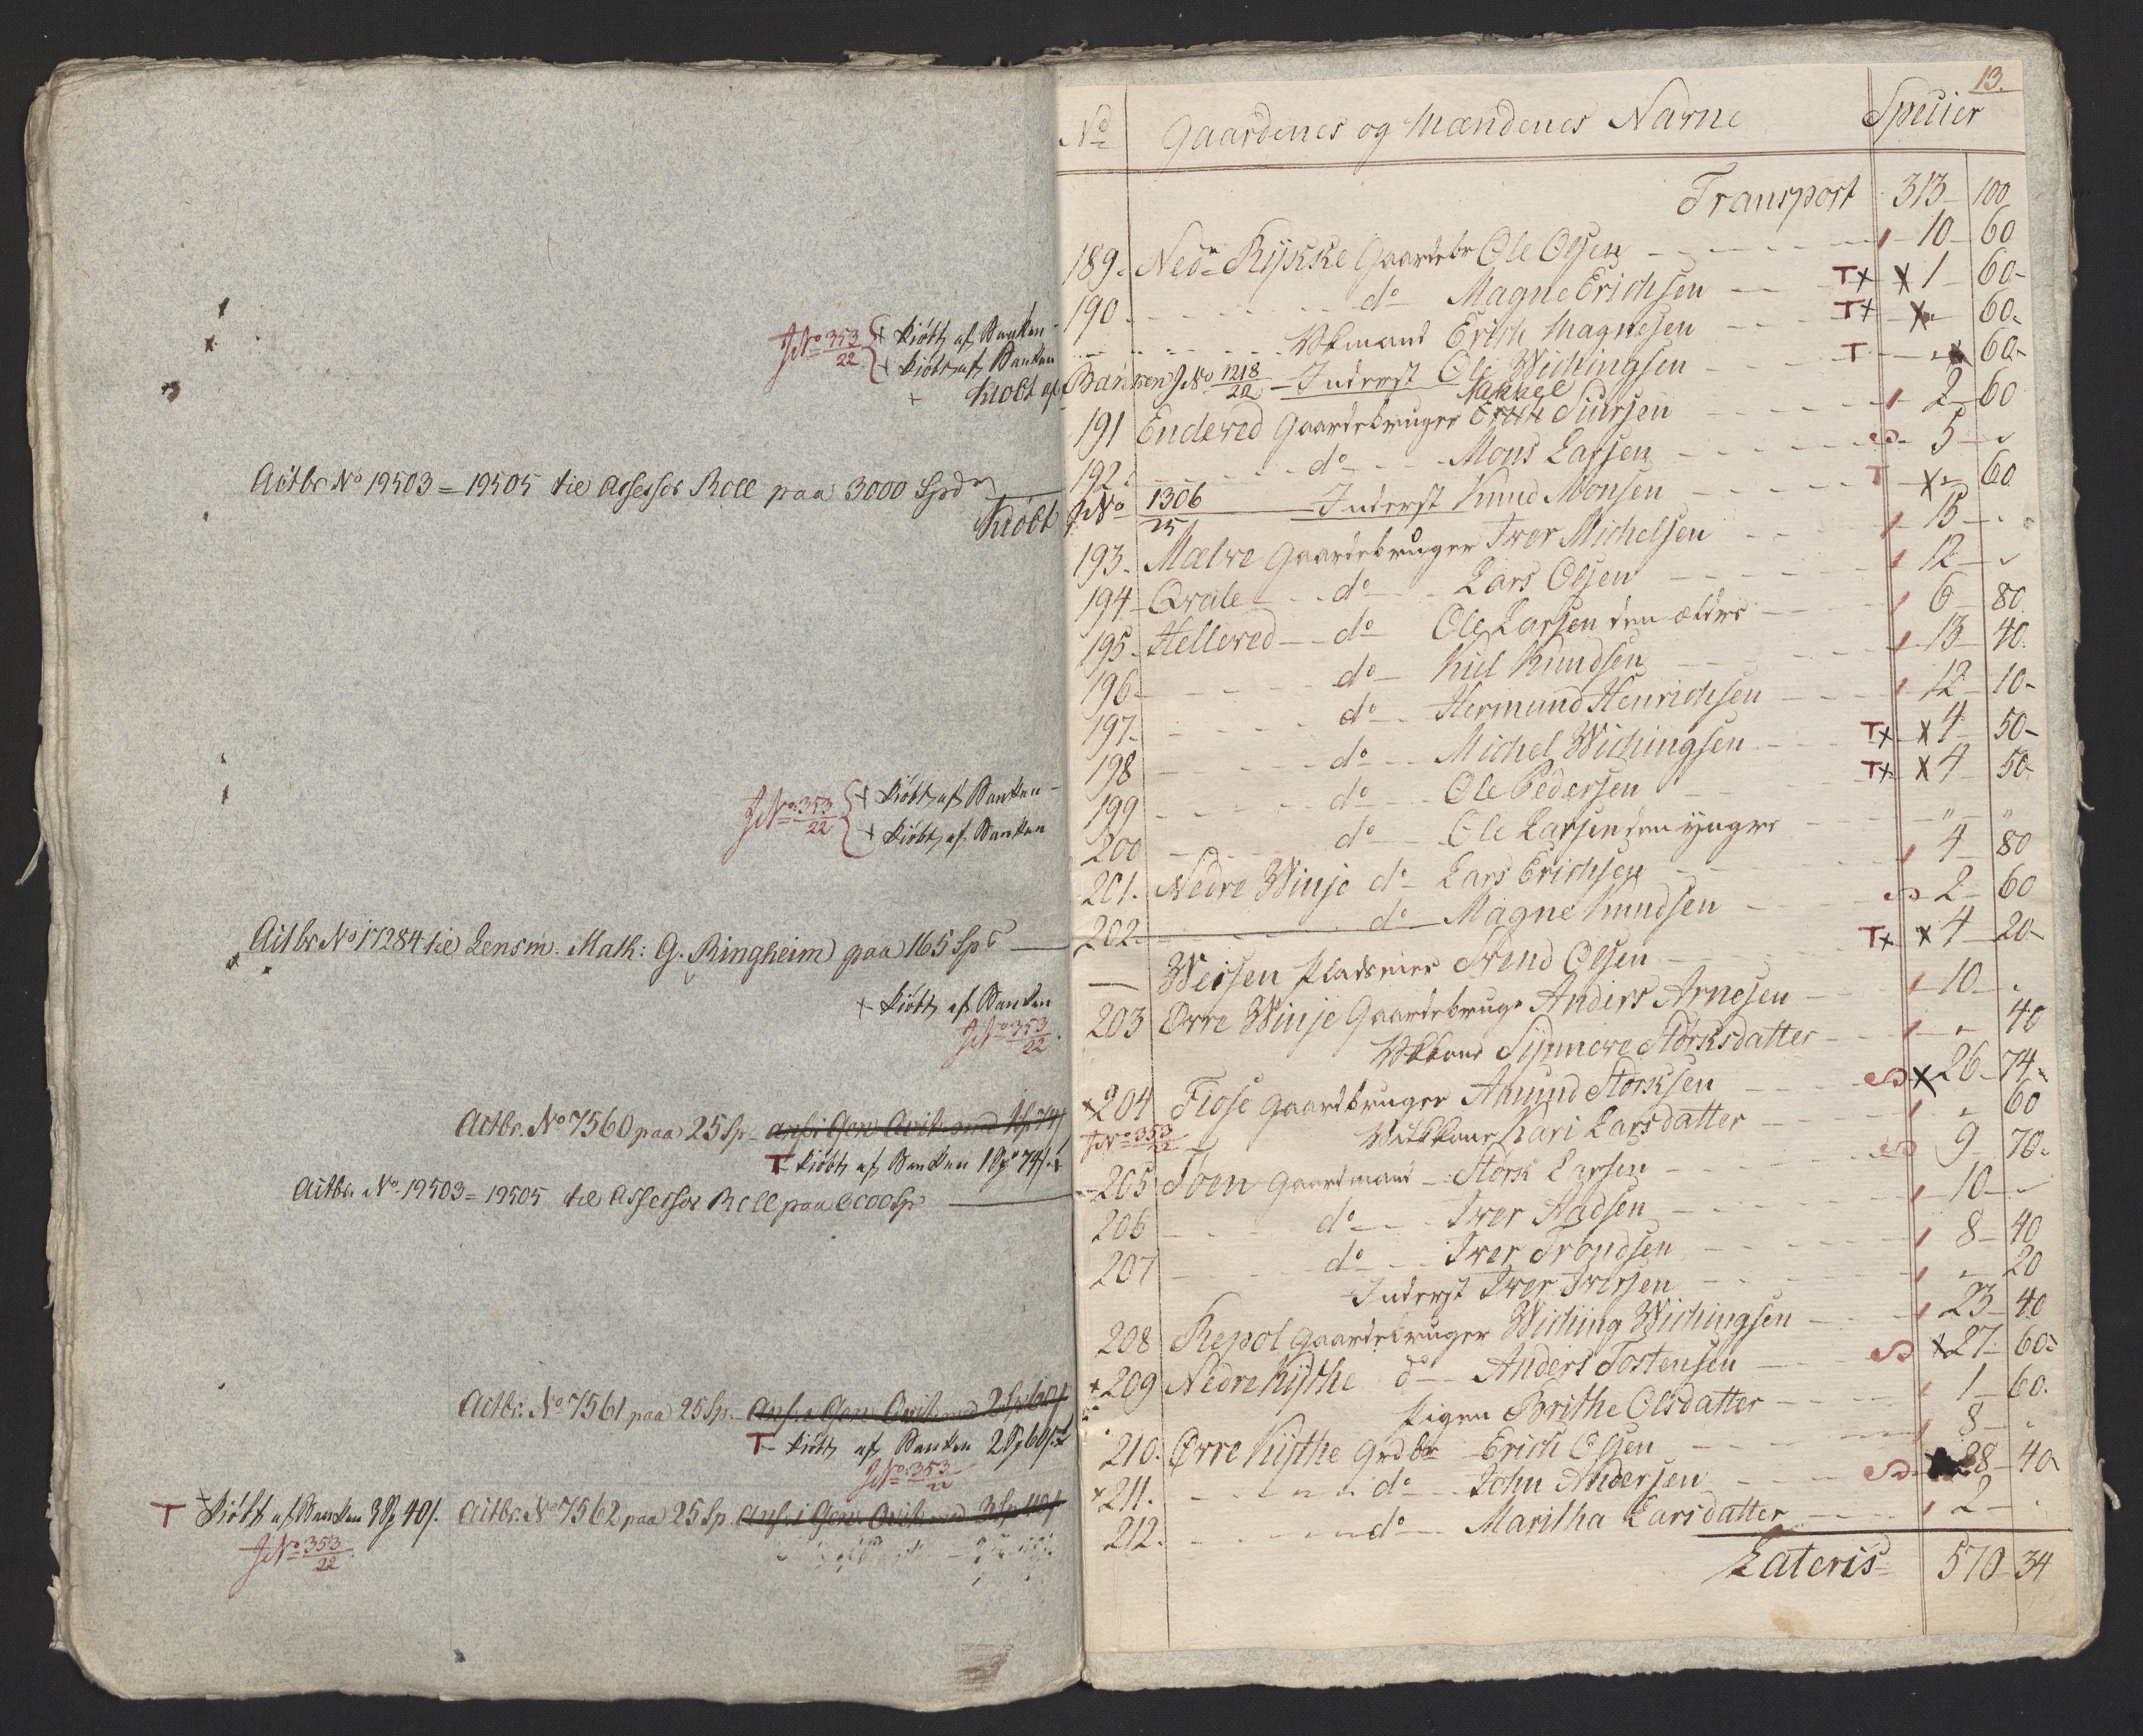 JNo 353/22 + kiöbt af Banken
+ kiöbt af Banken
+ Kiöbt af Banken JNo 1218/22
Actbr No 19503 = 19505 til Assessor Roll paa 3000 Spd
Kiöbt JNo 1306/25
JNo 353/22 + kiöbt af Banken
+ kiöbt af Banken
Actbr No 17284 til Lensm. Math: G. Ringheim paa 165 Sp
+ kiöbt af Banken
JNo 353/22
Actbr. No 7560 paa 25 Sp.
T kiöbt af Banken 1 Sp 74 s.
Actbr. No 19503 = 19505 til Assessor Roll paa 3000 Sp
Actbr. No 7561 paa 25 Sp.
T kiöbt af Banken 2 Sp 60 s.
JNo 353/22
T + kiöbt af Banken 3 Sp 40 s. Actbr. No 7562 paa 25 Sp.
JNo 353/22
13.
No Gaardenes og Mændenes Navne Specier
Transport 313 100
189. Nedr Rykke Gaardebr Ole Olsen 10 60
190 do Magne Erichsen T+ x 1 60
Vkmand Erich Magnesen T+ x " 60
Inderst Ole Wichingsen T x " 60
191 Endeved Gaardebruger Nakkel Siursen 2 60
192. do Mons Larsen 5 "
Inderst Knud Monsen T x " 60
193. Mælve Gaardebruger Iver Michelsen 15 "
194 Qvale do Lars Olsen 12 "
195 Helleved do Ole Larsen den ældre 6 80
196 do Kiel Knudsen 13 40
197. do Hermund Henrichsen 12 10
198 do Michel Wichingsen T+ x 4 50
199 do Ole Pedersen T+ x 4 50
200 do Ole Larsen den yngre " "
201. Nedre Winje do Lars Erichsen 4 80
202. do Magne Knudsen 2 60
Weisen Pladseier Svend Olsen T+ x 4 20
203 Øvre Winje Gaardebrugr Anders Arnesen 10 "
Vkkone Synneve Störksdatter " 40
x 204 Fiose Gaardbruger Amund Störksen x 26 74
JNo 353/22 Vkkone Kari Larsdatter " 60
205 Tven Gaardmand Störk Larsen 9 70
206 do Iver Aadsen 10 "
207 do Iver Trondsen 8 40
Inderst Iver Iversen " 20
208 Repøl Gaardebruger Wiching Wichingsen 23 40
x 209 Nedre Kÿthe do Anders Tostensen x 27 60
Pigen Brithe Olsdatter 1 60
210. Øvre Kÿthe Grdbr Erich Olsen 8 "
x 211. do John Andersen 28 40
212. do Maritha Larsdatter 2 "
Lateris 570 34